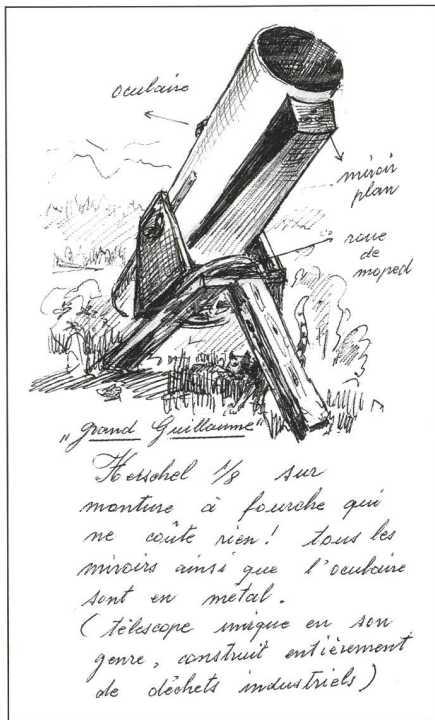 oculaire
miroir
plan
roue
de
moped
„Grand Guillaume"
Herschel 1/8 sur
monture à fourche qui
ne coûte rien! tous les
miroirs ainsi que l'oculaire
sont en metal.
(télescope unique en son
genre, construit entièrement
de déchets industriels)